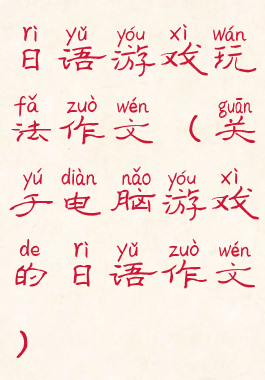 rì yǔ yóu xì wán
日语游戏玩
fǎ zuò wén guān
法作文（关
yú diàn nǎo yóu xì
于电脑游戏
de rì yǔ zuò wén
的日语作文
）